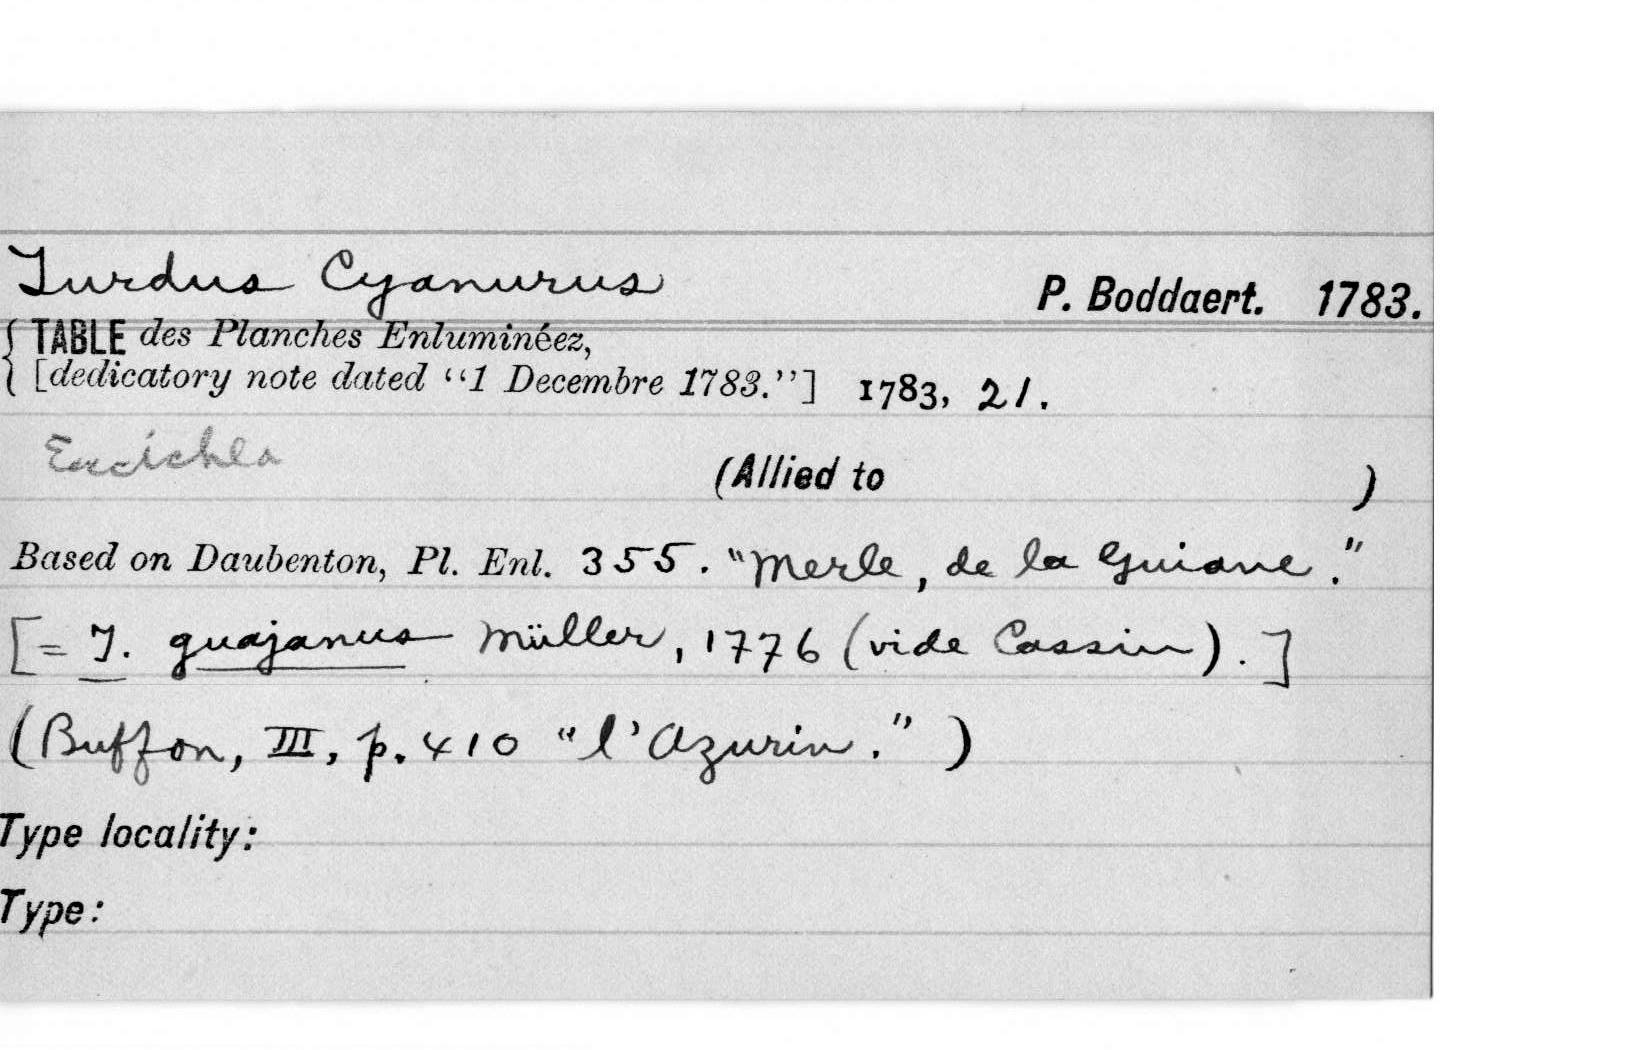 Turdus Cyanurus P. Boddaert. 1783.
{ TABLE des Planches Enluminéez,
[dedicatory note dated “1 Decembre 1783.”] 1783, 21.
Eucichla (Allied to )
Based on Daubenton, Pl. Enl. 355. "Merle, de la Guiane."
[= T. guajanus Müller, 1776 (vide Cassin).]
(Buffon, III, p. 410 "l'Azurin.")
Type locality:
Type: